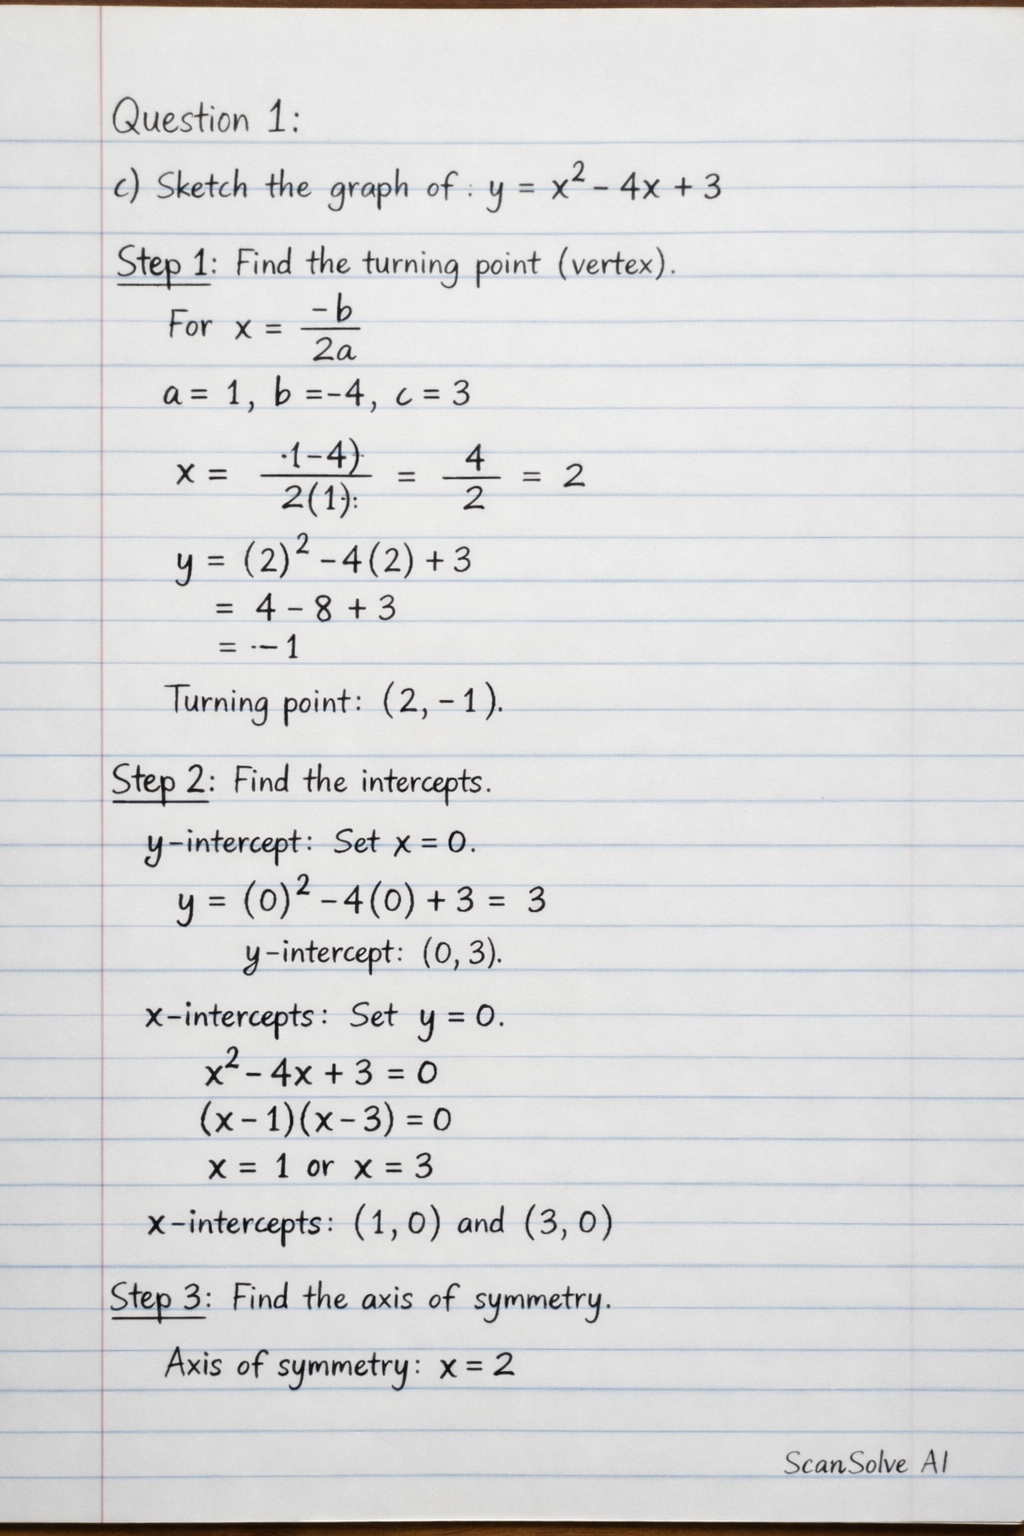 Question 1:
c) Sketch the graph of : y = x² - 4x + 3
Step 1: Find the turning point (vertex).
For x = -b / 2a
a = 1, b = -4, c = 3
x = ·1-4) / 2(1): = 4 / 2 = 2
y = (2)² - 4(2) + 3
= 4 - 8 + 3
= -- 1
Turning point: (2, -1).
Step 2: Find the intercepts.
y-intercept: Set x = 0.
y = (0)² - 4(0) + 3 = 3
y-intercept: (0, 3).
x-intercepts: Set y = 0.
x² - 4x + 3 = 0
(x - 1)(x - 3) = 0
x = 1 or x = 3
x-intercepts: (1, 0) and (3, 0)
Step 3: Find the axis of symmetry.
Axis of symmetry: x = 2
ScanSolve AI